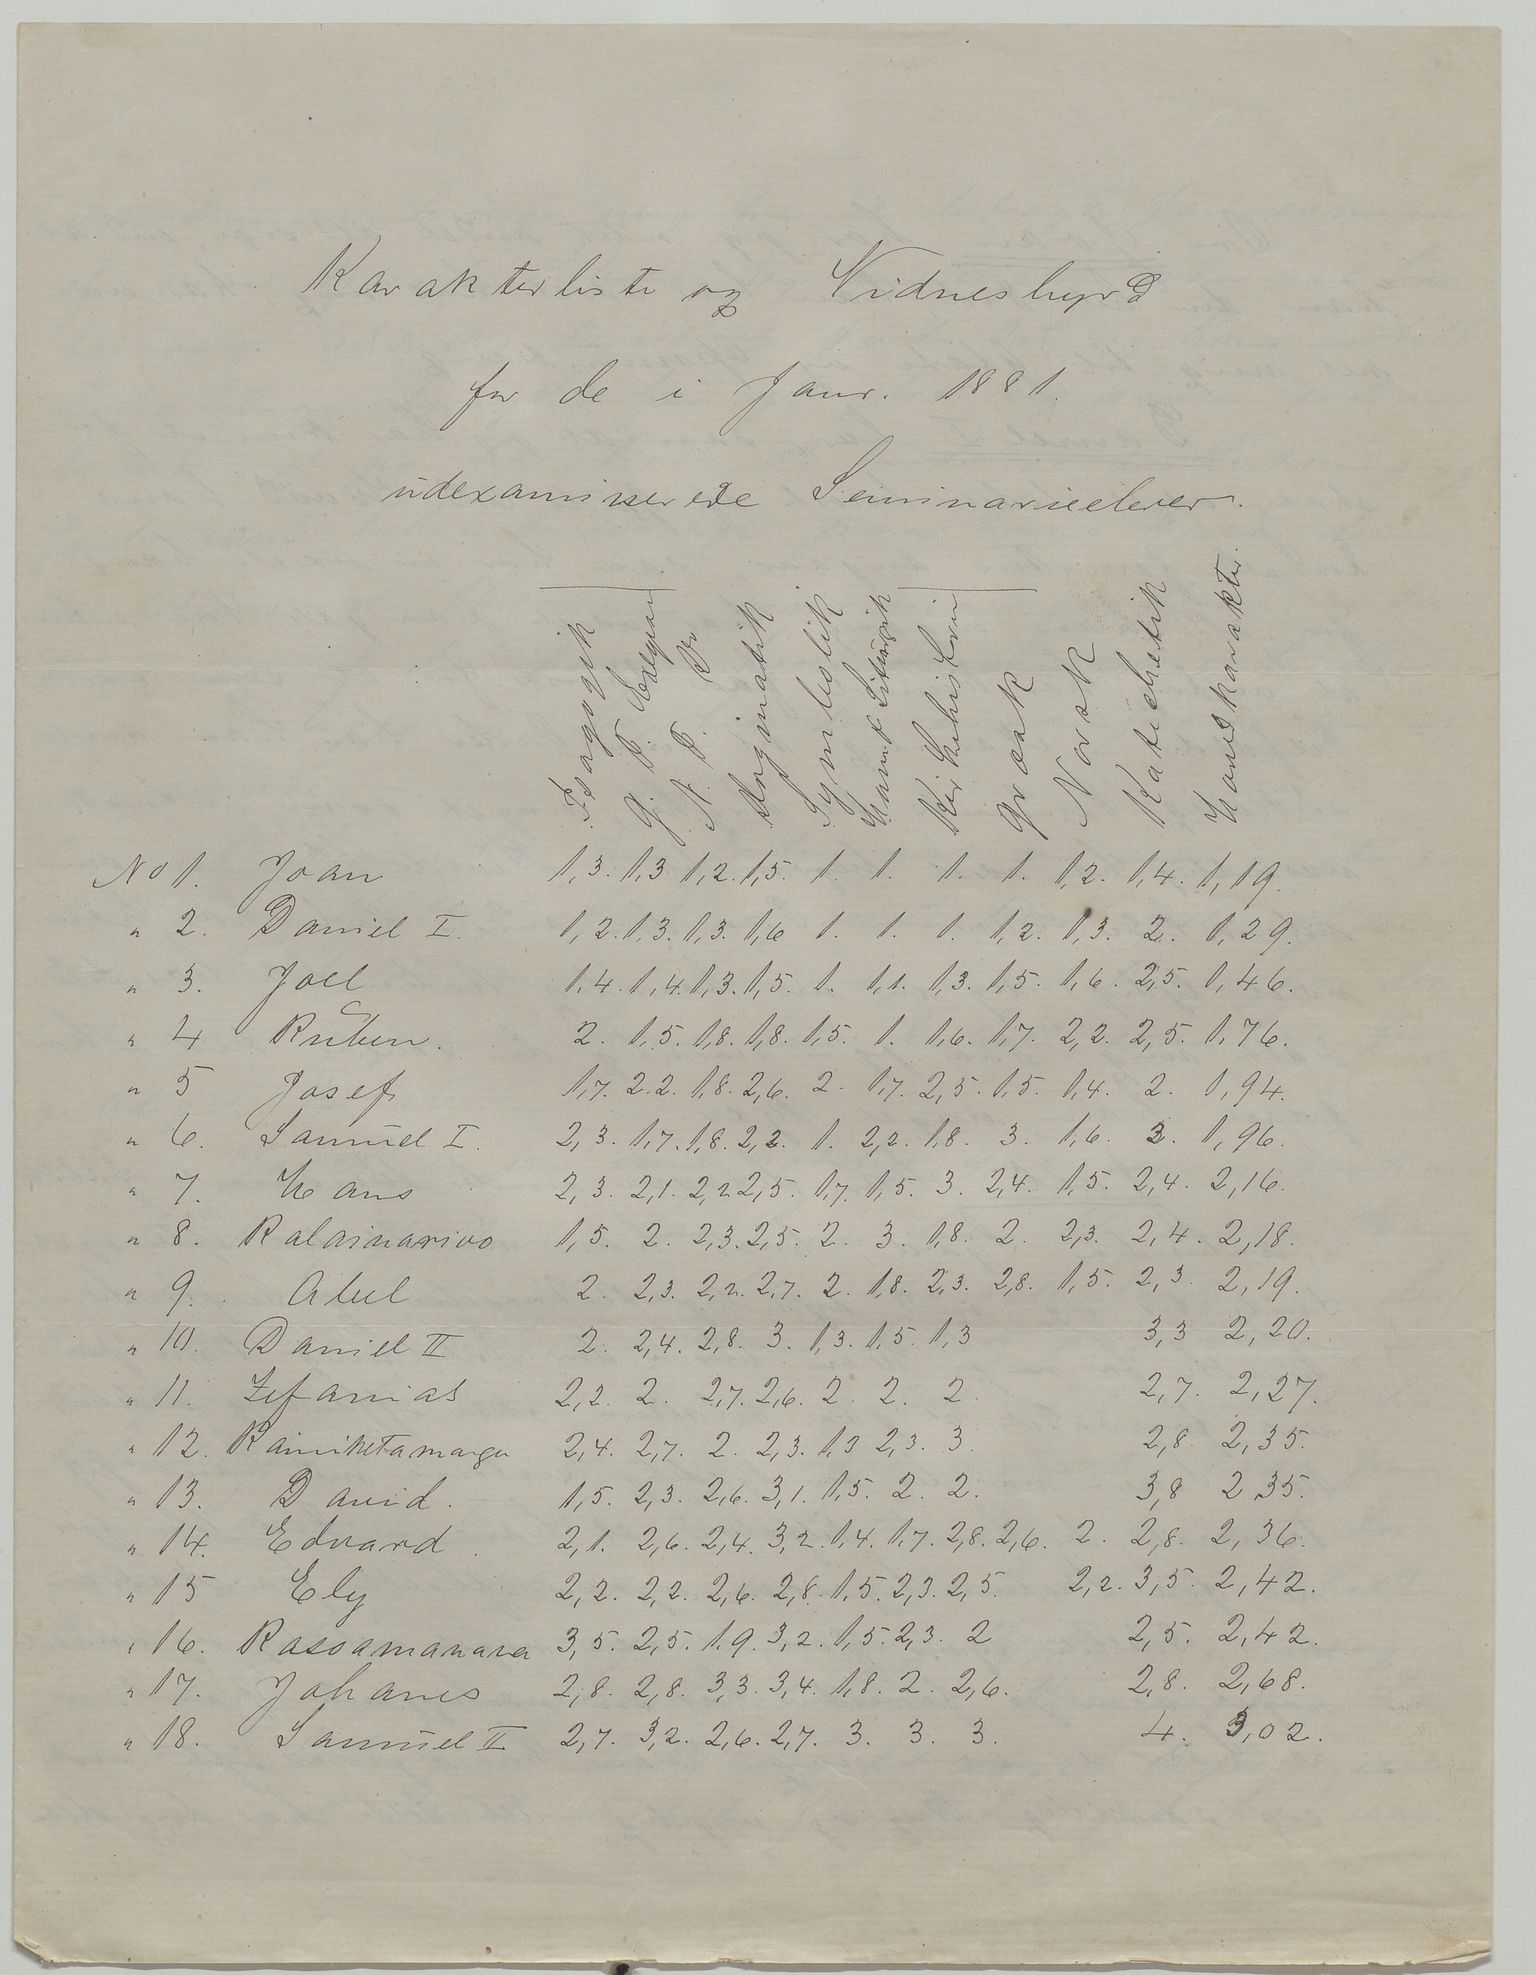 Karakterliste og Vidnesbyrd
for de i Janr. 1881.
udexaminerede Seminarieelever.
Isagogik
G. T. Exegese
N. T. Do
Dogmatik
Symbolik
Ham & Liturgik
Kirkehistorie
Græsk
Norsk
Katechetik
Hovedkarakter.
No 1. Joan 1,3. 1,3 1,2. 1,5. 1. 1. 1. 1. 1,2. 1,4. 1,19.
" 2. Daniel I. 1,2. 1,3. 1,3. 1,6 1. 1. 1. 1,2. 1,3. 2. 1,29.
" 3. Joel 1,4. 1,4. 1,3. 1,5. 1. 1,1. 1,3. 1,5. 1,6. 2,5. 1,46.
" 4 Ruben. 2. 1,5. 1,8. 1,8. 1,5. 1. 1,6. 1,7. 2,2. 2,5. 1,76.
" 5 Josef 1,7. 2.2. 1,8. 2,6. 2. 1,7. 2,5. 1,5. 1,4. 2. 1,94.
" 6. Samuel I. 2,3. 1,7. 1,8. 2,2. 1. 2,2. 1,8. 3. 1,6. 2. 1,96.
" 7. Hans 2,3. 2,1. 2,2 2,5. 1,7. 1,5. 3. 2,4. 1,5. 2,4. 2,16.
" 8. Ralainarivo 1,5. 2. 2,3. 2,5. 2. 3. 1,8. 2. 2,3. 2,4. 2,18.
" 9. Abel 2. 2,3. 2,2. 2,7. 2. 1,8. 2,3. 2,8. 1,5. 2,3. 2,19.
" 10. Daniel II 2. 2,4. 2,8. 3. 1,3. 1,5. 1,3 3,3 2,20.
" 11. Zefanias 2,2. 2. 2,7. 2,6. 2. 2. 2. 2,7. 2,27.
" 12. Rainiketamanga 2,4. 2,7. 2. 2,3. 1,3 2,3. 3. 2,8. 2,35.
" 13. David. 1,5. 2,3. 2,6. 3,1. 1,5. 2. 2. 3,8 2 35.
" 14. Edvard. 2,1. 2,6. 2,4. 3,2. 1,4. 1,7. 2,8. 2,6. 2. 2,8. 2,36.
" 15 Ely 2,2. 2,2. 2,6. 2,8. 1,5. 2,3. 2,5. 2,2. 3,5. 2,42.
" 16. Rasoamanana 3,5. 2,5. 1,9. 3,2. 1,5. 2,3. 2 2,5. 2,42.
" 17. Johanes 2,8. 2,8. 3,3. 3,4. 1,8. 2. 2,6. 2,8. 2,68.
" 18. Samuel II 2,7. 3,2. 2,6. 2,7. 3. 3. 3. 4. 3,02.